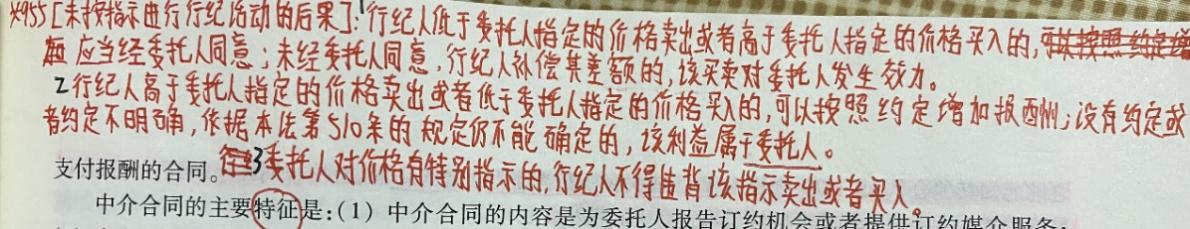 *955[未按指示进行行纪活动的后果]:1行纪人低于委托人指定的价格卖出或者高于委托人指定的价格买入的,可以按照约定增
应当经委托人同意;未经委托人同意,行纪人补偿其差额的,该买卖对委托人发生效力。
2行纪人高于委托人指定的价格卖出或者低于委托人指定的价格买入的,可以按照约定增加报酬;没有约定或
者约定不明确,依据本法第510条的规定仍不能确定的,该利益属于委托人。
支付报酬的合同。行纪3委托人对价格有特别指示的,行纪人不得违背该指示卖出或者买入。
中介合同的主要特征是:(1)中介合同的内容是为委托人报告订约机会或者提供订约媒介服务;